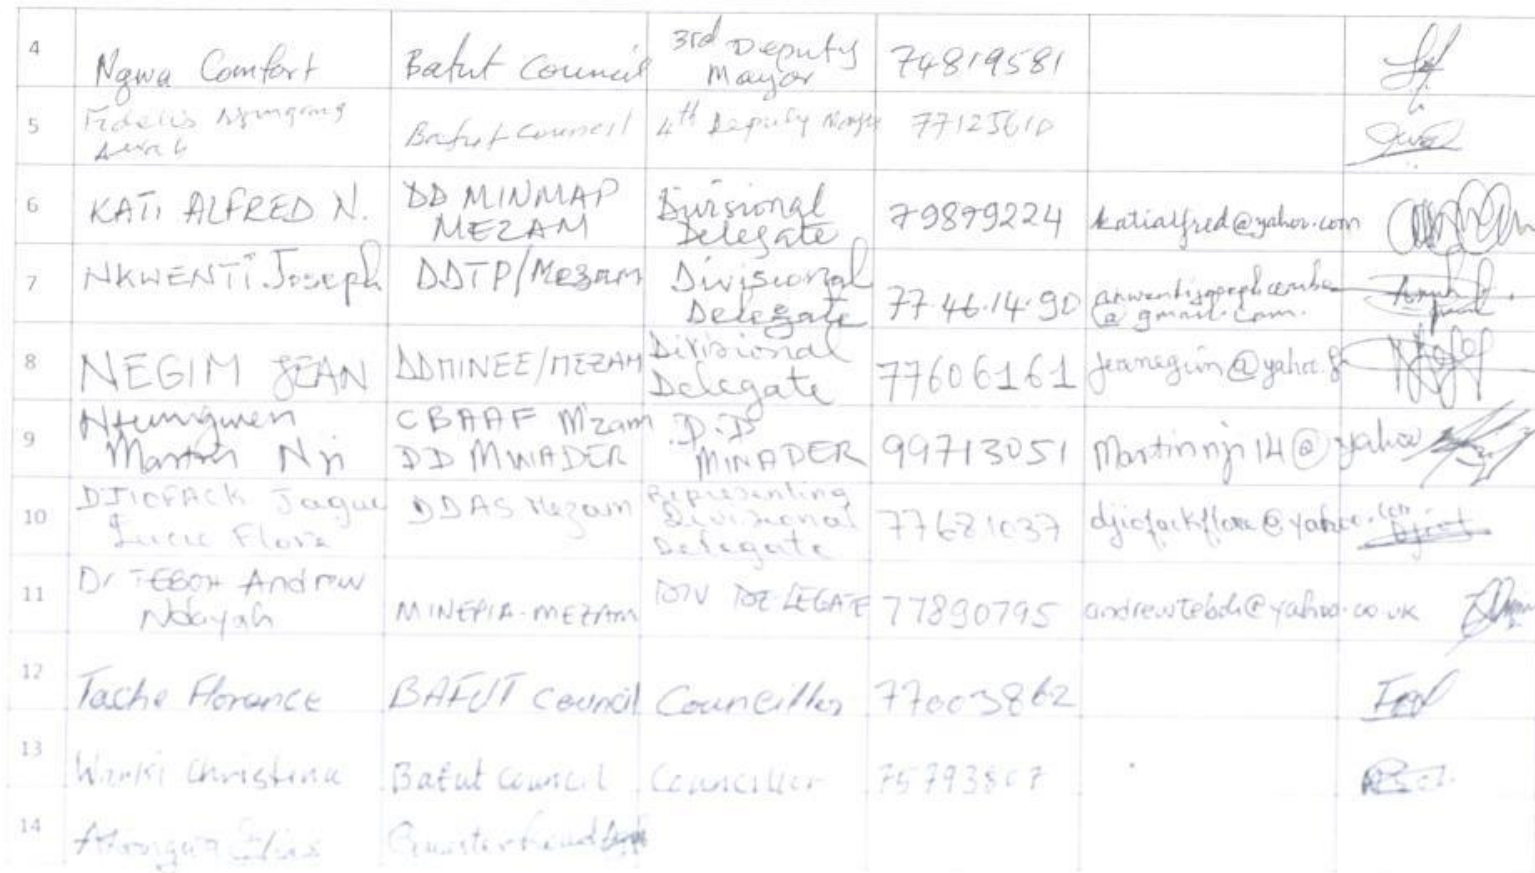 4 Ngwa Comfort Bafut Council 3rd Deputy Mayor 74819581
5 Fidelis Awah Bafut Council 4th Deputy Mayor 77125610
6 KATI ALFRED N. DD MINMAP MEZAM Divisional Delegate 79879224 katialfred@yahoo.com
7 NKWENTI Joseph DDTP/Mezam Divisional Delegate 77.46.14.90 @gmail.com.
8 NEGIM JEAN DDMINEE/MEZAM Divisional Delegate 77606161 jeanegim@yahoo.fr
9 Ntumgwen Martin Nji CBAAF M'zam DD MINADER D.D MINADER 99713051 Martinnji14@yahoo
10 DJIOFACK Jague Lucie Flore DDAS Mezam Representing Divisional Delegate 77621037 djiofackflore@yahoo.com
11 Dr TEBOH Andrew Ndayah MINEPIA-MEZAM DIV DELEGATE 77890795 andrewteboh@yahoo.co.uk
12 Tache Florence BAFUT Council Councillor 77003862
13 Christina Bafut Council Councillor 75793807
14